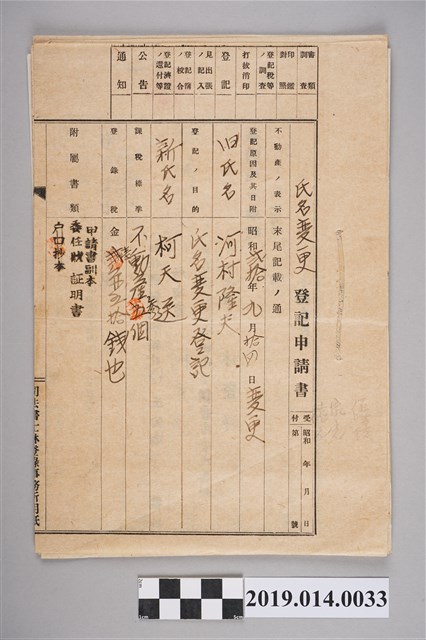 氏名変更 登記申請書
受付 昭和 年 月 日
第 號
不動産ノ表示 末尾記載ノ通
登記原因及其日附 昭和貳拾年九月拾四日変更
旧氏名 河村隆夫
登記ノ目的 氏名変更登記
新氏名 柯天送
課税標準 不動産 個
登録税 金 拾錢也
附屬書類 申請書副本
委任狀 証明書
戸口抄本
審査 類調査
印鑑對照
登記税等ノ調査
打狀消印
登記
見出張ノ記入
登記簿ノ校合
登記濟證ノ還付等
公告
通知
2019.014.0033